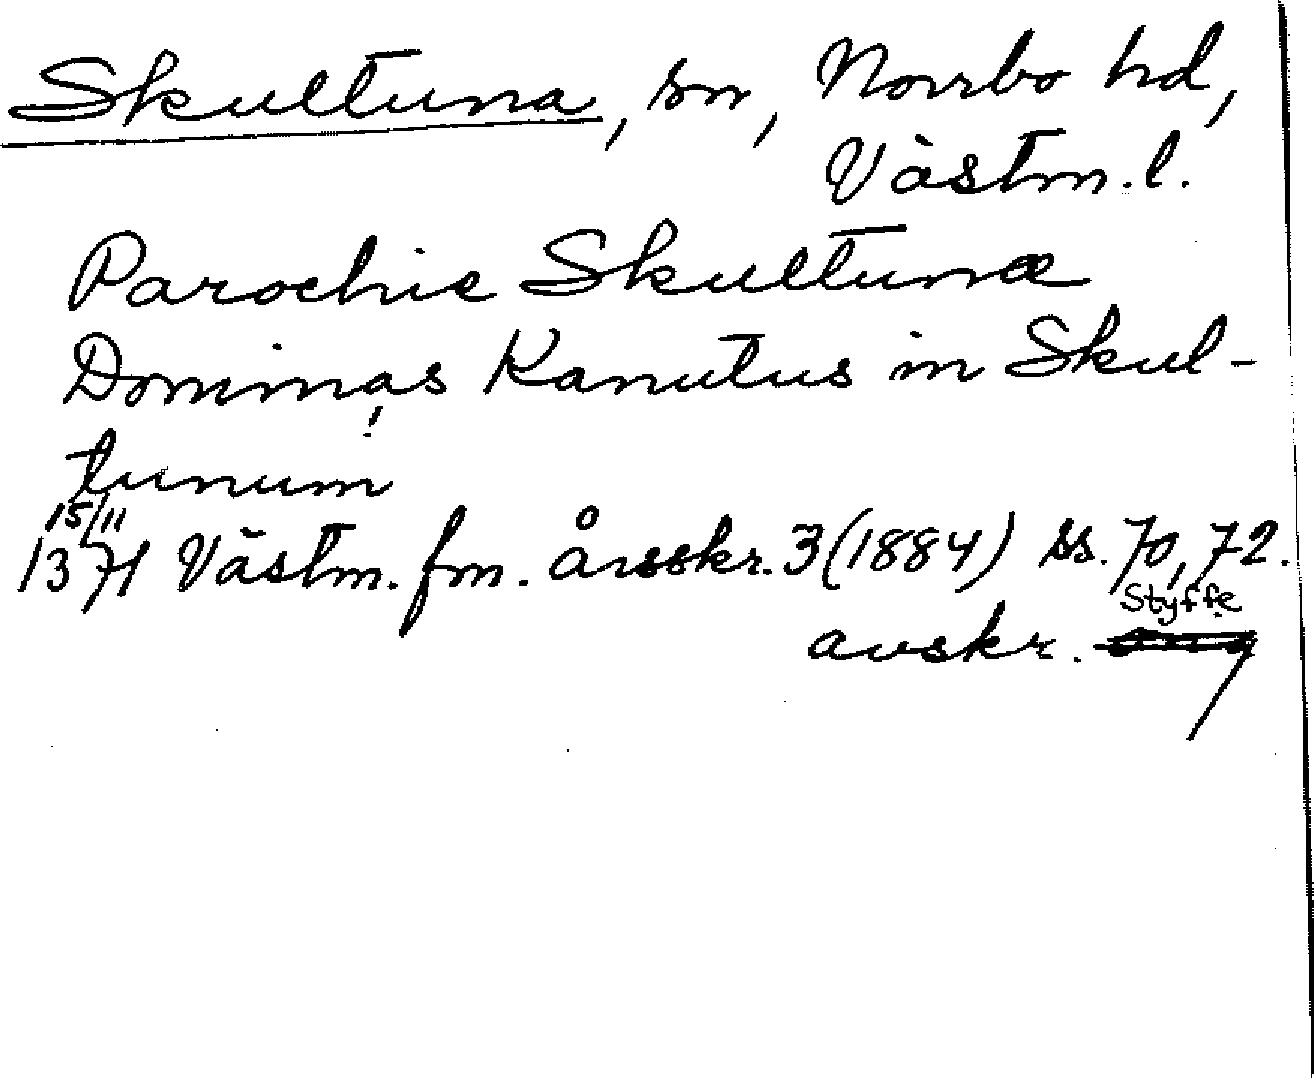 Skultuna, sn, Norrbo hd,
Västm. l.
Parochie Skultunæ
Dominas Kanutus in Skul-
!
tunum
15/11
1371 Västm. fm. årsskr. 3 (1884) ss. 70, 72.
Styffe
avskr.